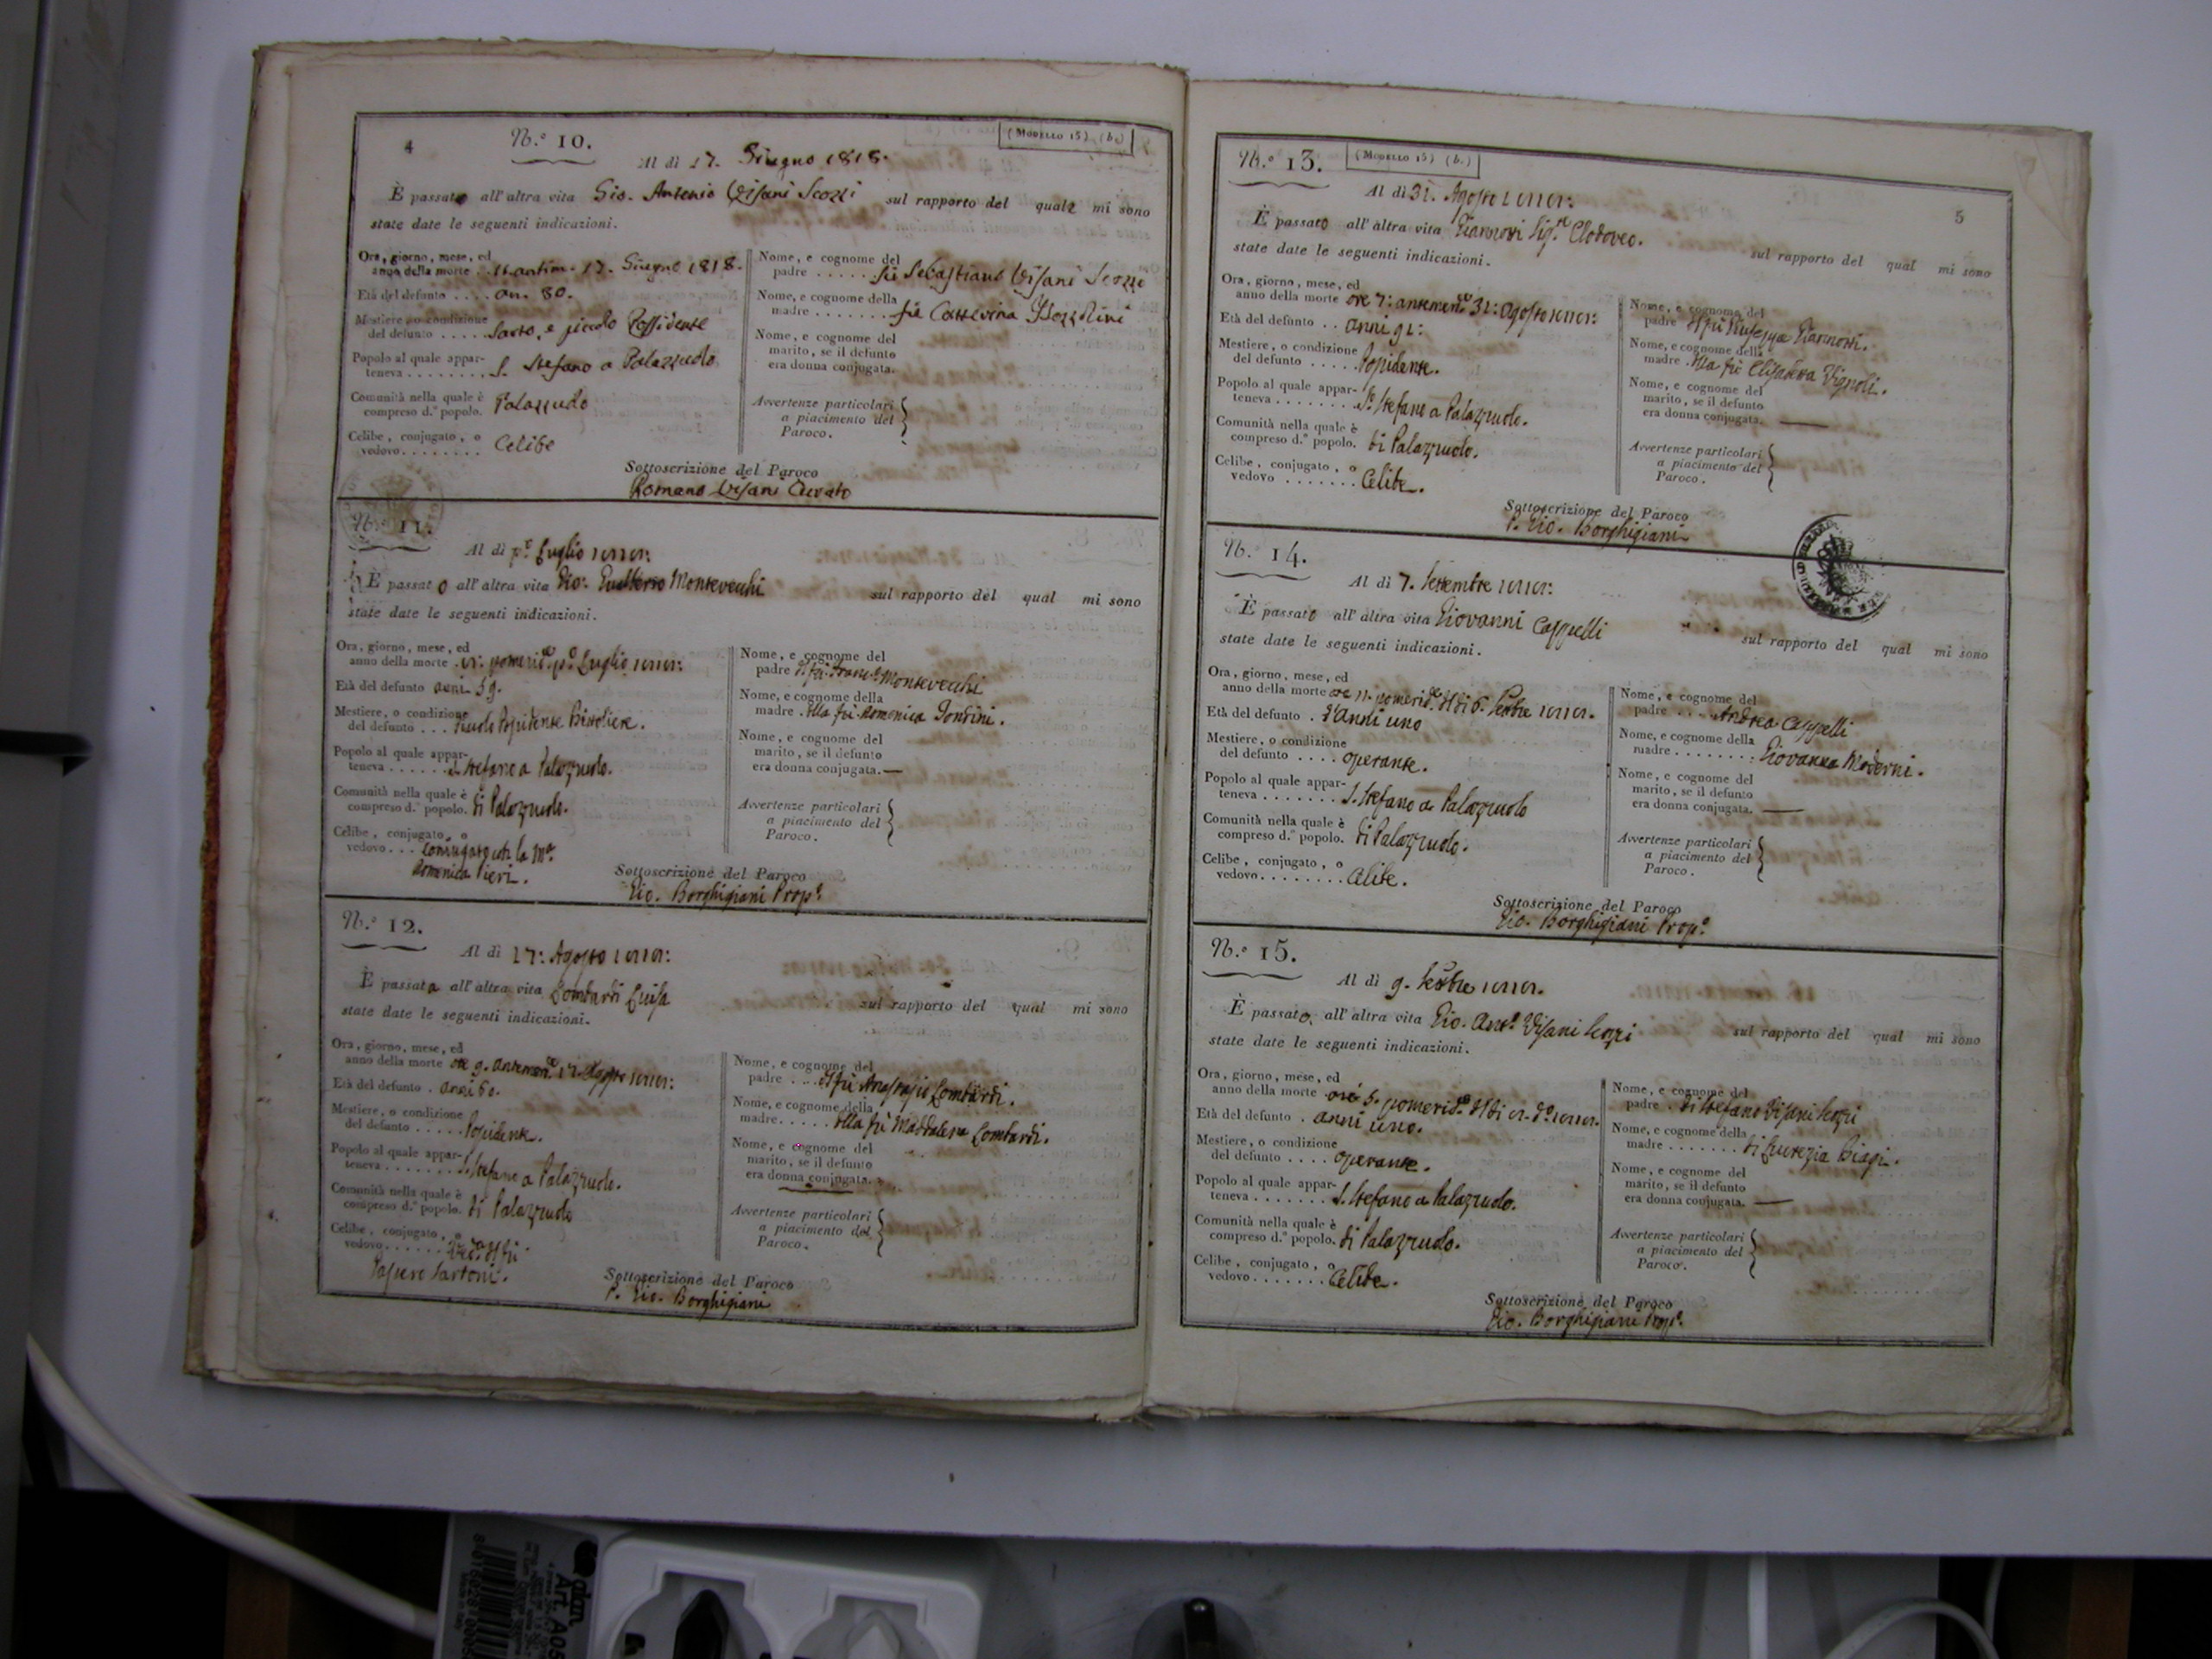 4
N.º 10.
(Modello 15) (b.)
Al dì 17. Giugno 1818.
È passato all'altra vita Gio. Antonio Visani Scozzi sul rapporto del quale mi sono
state date le seguenti indicazioni.
Ora, giorno, mese, ed
anno della morte . 11. antim. 17. Giugno 1818.
Età del defunto .... an. 80.
Mestiere, o condizione
del defunto ..... Sarto, e piccolo Possidente
Popolo al quale appar-
teneva ........ S. Stefano a Palazzuolo
Comunità nella quale è
compreso d.º popolo. Palazzuolo
Celibe, conjugato, o
vedovo........ Celibe
Nome, e cognome del
padre ...... fù Sebastiano Visani Scozzi
Nome, e cognome della
madre ....... fù Catterina
Nome, e cognome del
marito, se il defunto
era donna conjugata.
Avvertenze particolari
a piacimento del
Paroco.
Sottoscrizione del Paroco
Romano Visani Curato
N.º 11.
Al dì p.º Luglio 1818:
È passato all'altra vita Gio: Montevecchi sul rapporto del qual mi sono
state date le seguenti indicazioni.
Ora, giorno, mese, ed
anno della morte . pomerid.e p.º Luglio 1818:
Età del defunto anni 59.
Mestiere, o condizione
del defunto ... Piccolo Possidente
Popolo al quale appar-
teneva ...... S. Stefano a Palazzuolo.
Comunità nella quale è
compreso d.º popolo. di Palazzuolo.
Celibe, conjugato, o
vedovo... conjugato con la M.a
Domenica Pieri.
Nome, e cognome del
padre del fù Franc.º Montevecchi
Nome, e cognome della
madre . della fù Domenica
Nome, e cognome del
marito, se il defunto
era donna conjugata. —
Avvertenze particolari
a piacimento del
Paroco.
Sottoscrizione del Paroco
Gio. Borghigiani Prop.º
N.º 12.
Al dì 17: Agosto 1818:
È passata all'altra vita Lombardi Luisa sul rapporto del qual mi sono
state date le seguenti indicazioni.
Ora, giorno, mese, ed
anno della morte ore 9. antemer.e 17. Agosto 1818:
Età del defunto . anni 60.
Mestiere, o condizione
del defunto ..... Possidente.
Popolo al quale appar-
teneva ....... S. Stefano a Palazzuolo.
Comunità nella quale è
compreso d.º popolo. di Palazzuolo
Celibe, conjugato, o
vedovo...... Ved.a del fù
Sartoni.
Nome, e cognome del
padre .... del fù Anastasio Lombardi.
Nome, e cognome della
madre..... della fù Maddalena Lombardi.
Nome, e cognome del
marito, se il defunto
era donna conjugata.
Avvertenze particolari
a piacimento del
Paroco.
Sottoscrizione del Paroco
P. Gio. Borghigiani
5
N.º 13.
(Modello 15) (b.)
Al dì 31. Agosto 1818:
È passato all'altra vita Giannotti Sig.r Clodoveo. sul rapporto del qual mi sono
state date le seguenti indicazioni.
Ora, giorno, mese, ed
anno della morte ore 7: antemer.e 31: Agosto 1818:
Età del defunto .. anni 91:
Mestiere, o condizione
del defunto ..... Possidente.
Popolo al quale appar-
teneva ........ S.º Stefano a Palazzuolo.
Comunità nella quale è
compreso d.º popolo. di Palazzuolo.
Celibe, conjugato, o
vedovo ....... Celibe.
Nome, e cognome del
padre del fù Giannotti.
Nome, e cognome della
madre . della fù Elisabetta Vignoli.
Nome, e cognome del
marito, se il defunto
era donna conjugata. —
Avvertenze particolari
a piacimento del
Paroco.
Sottoscrizione del Paroco
P. Gio. Borghigiani
N.º 14.
Al dì 7. Settembre 1818:
È passato all'altra vita Giovanni Cappelli sul rapporto del qual mi sono
state date le seguenti indicazioni.
Ora, giorno, mese, ed
anno della morte ore 11. pomerid.e del dì 6. Settbre 1818.
Età del defunto . d'Anni uno
Mestiere, o condizione
del defunto .... operante.
Popolo al quale appar-
teneva ....... S. Stefano a Palazzuolo
Comunità nella quale è
compreso d.º popolo. di Palazzuolo.
Celibe, conjugato, o
vedovo........ Celibe.
Nome, e cognome del
padre .... Andrea Cappelli
Nome, e cognome della
madre ........ Giovanna Moderni.
Nome, e cognome del
marito, se il defunto
era donna conjugata. —
Avvertenze particolari
a piacimento del
Paroco.
Sottoscrizione del Paroco
Gio. Borghigiani Prop.º
N.º 15.
Al dì 9. Settbre 1818.
È passato, all'altra vita Gio. Ant.º Visani Scozzi sul rapporto del qual mi sono
state date le seguenti indicazioni.
Ora, giorno, mese, ed
anno della morte ore 5. pomerid.e del dì 8. d.º 1818.
Età del defunto . anni uno.
Mestiere, o condizione
del defunto .... operante.
Popolo al quale appar-
teneva ....... S. Stefano a Palazzuolo.
Comunità nella quale è
compreso d.º popolo. di Palazzuolo.
Celibe, conjugato, o
vedovo....... Celibe.
Nome, e cognome del
padre . di Stefano Visani Scozzi
Nome, e cognome della
madre ....... di Lucrezia Biagi.
Nome, e cognome del
marito, se il defunto
era donna conjugata. —
Avvertenze particolari
a piacimento del
Paroco.
Sottoscrizione del Paroco
Gio. Borghigiani Prop.º
adam
Art. A05